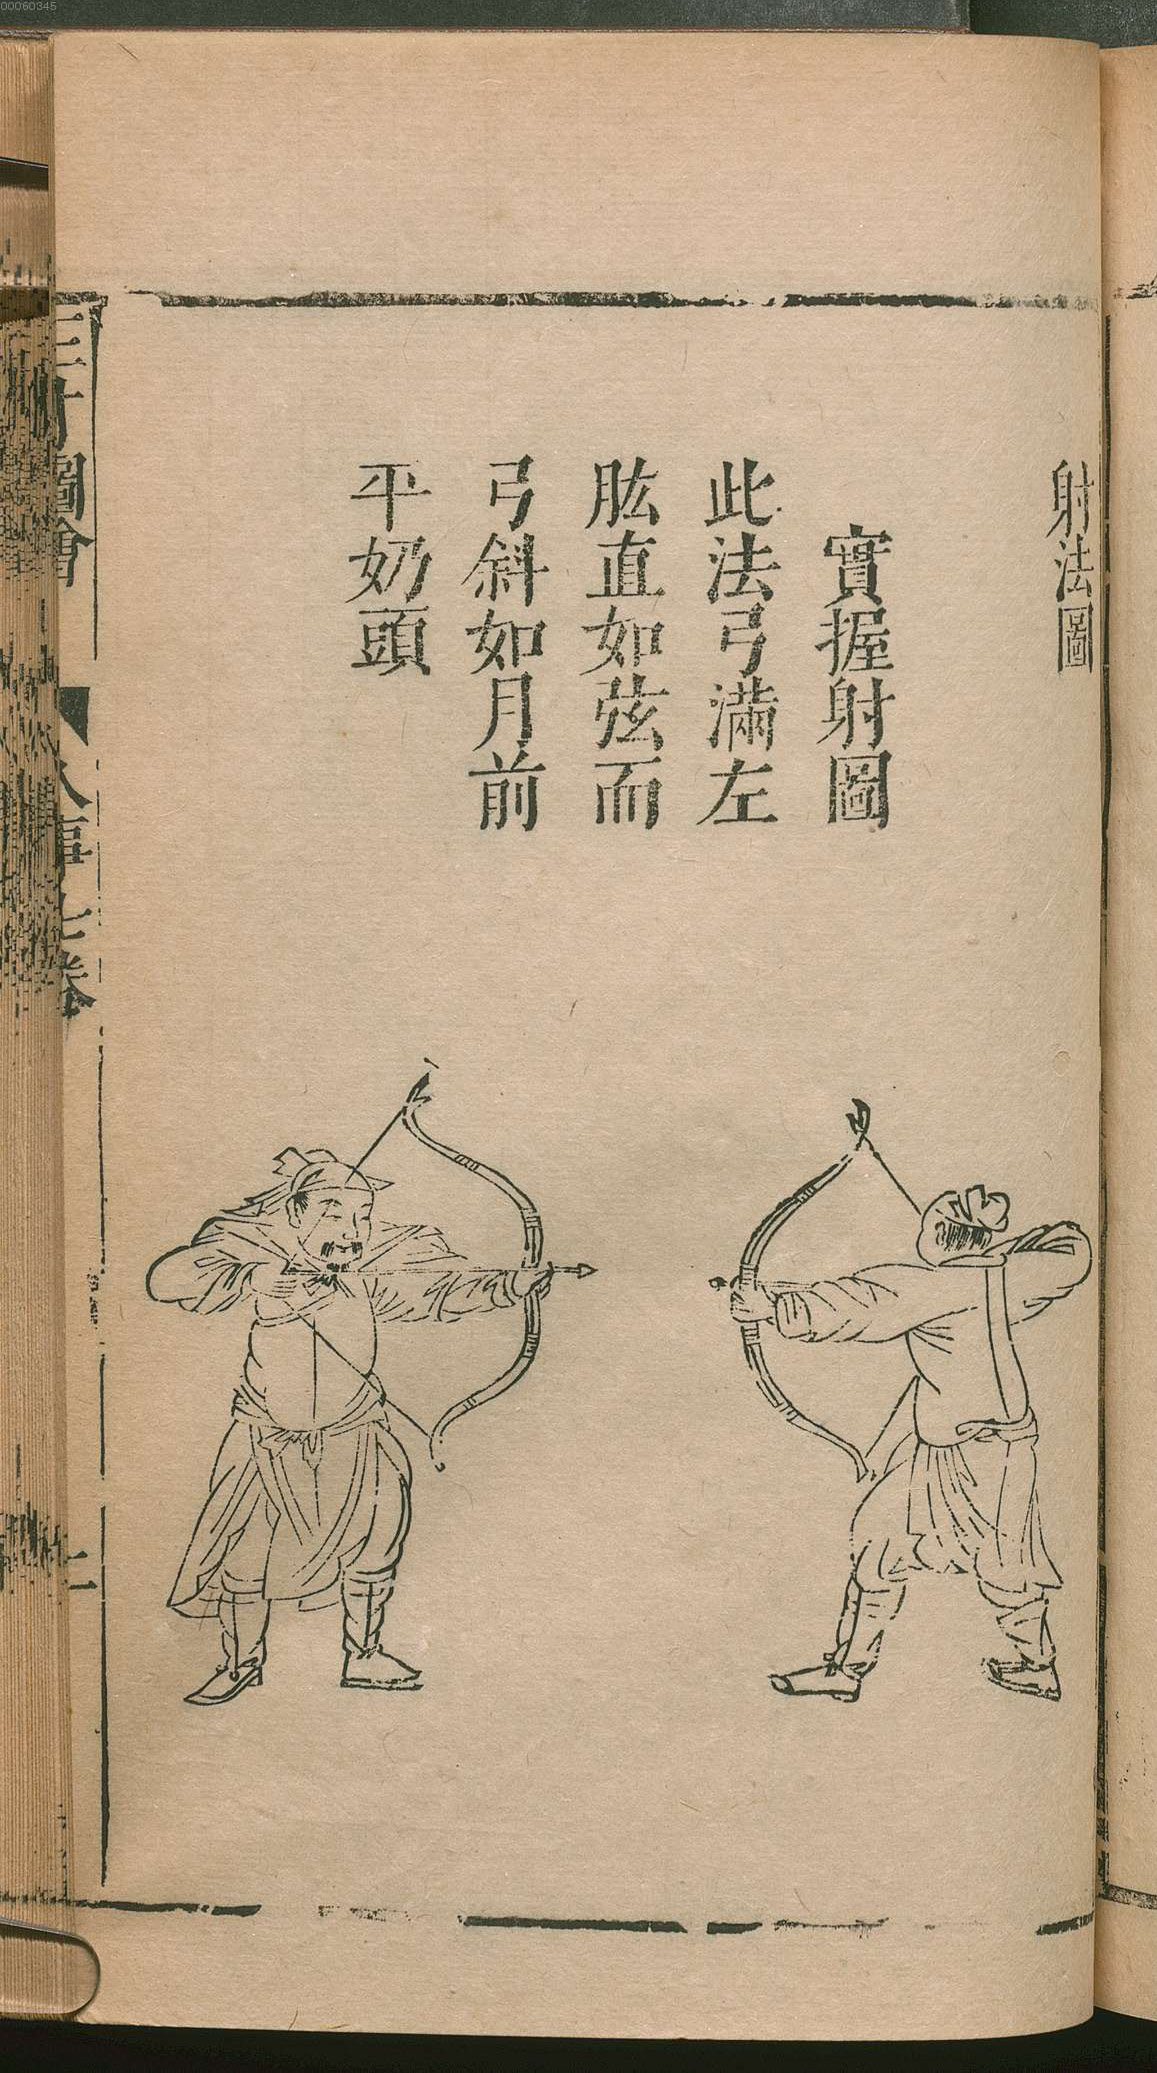 射法圖
實握射圖
此法弓滿左
肱直如弦而
弓斜如月前
平奶頭
三才圖會
人事七卷
二
00060345